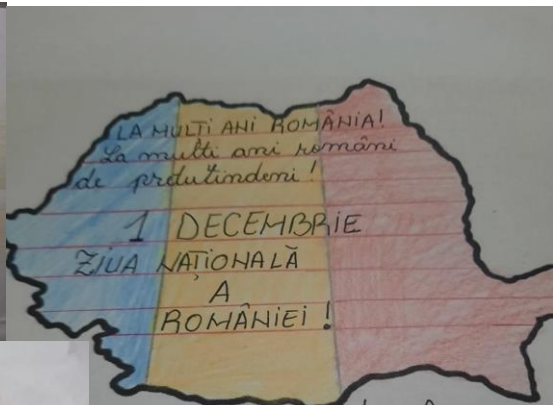 LA MULTI ANI ROMÂNIA!
La multi ani români
de predutindeni!
1 DECEMBRIE
ZIUA NAȚIONALĂ
A
ROMÂNIEI!